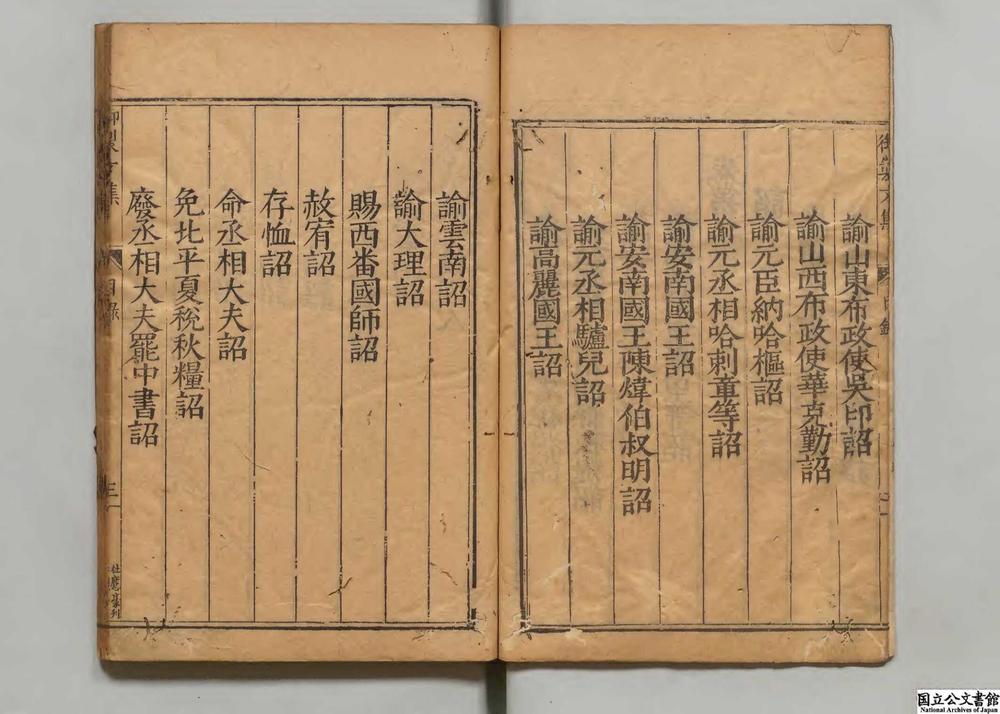 諭山東布政使吳印詔
諭山西布政使華克勤詔
諭元臣納哈樞詔
諭元丞相哈剌章等詔
諭安南國王詔
諭安南國王陳煒伯叔明詔
諭元丞相驢兒詔
諭高麗國王詔
諭雲南詔
諭大理詔
賜西番國師詔
赦宥詔
存恤詔
命丞相大夫詔
免北平夏稅秋糧詔
廢丞相大夫罷中書詔
目錄
三
国立公文書館
National Archives of Japan